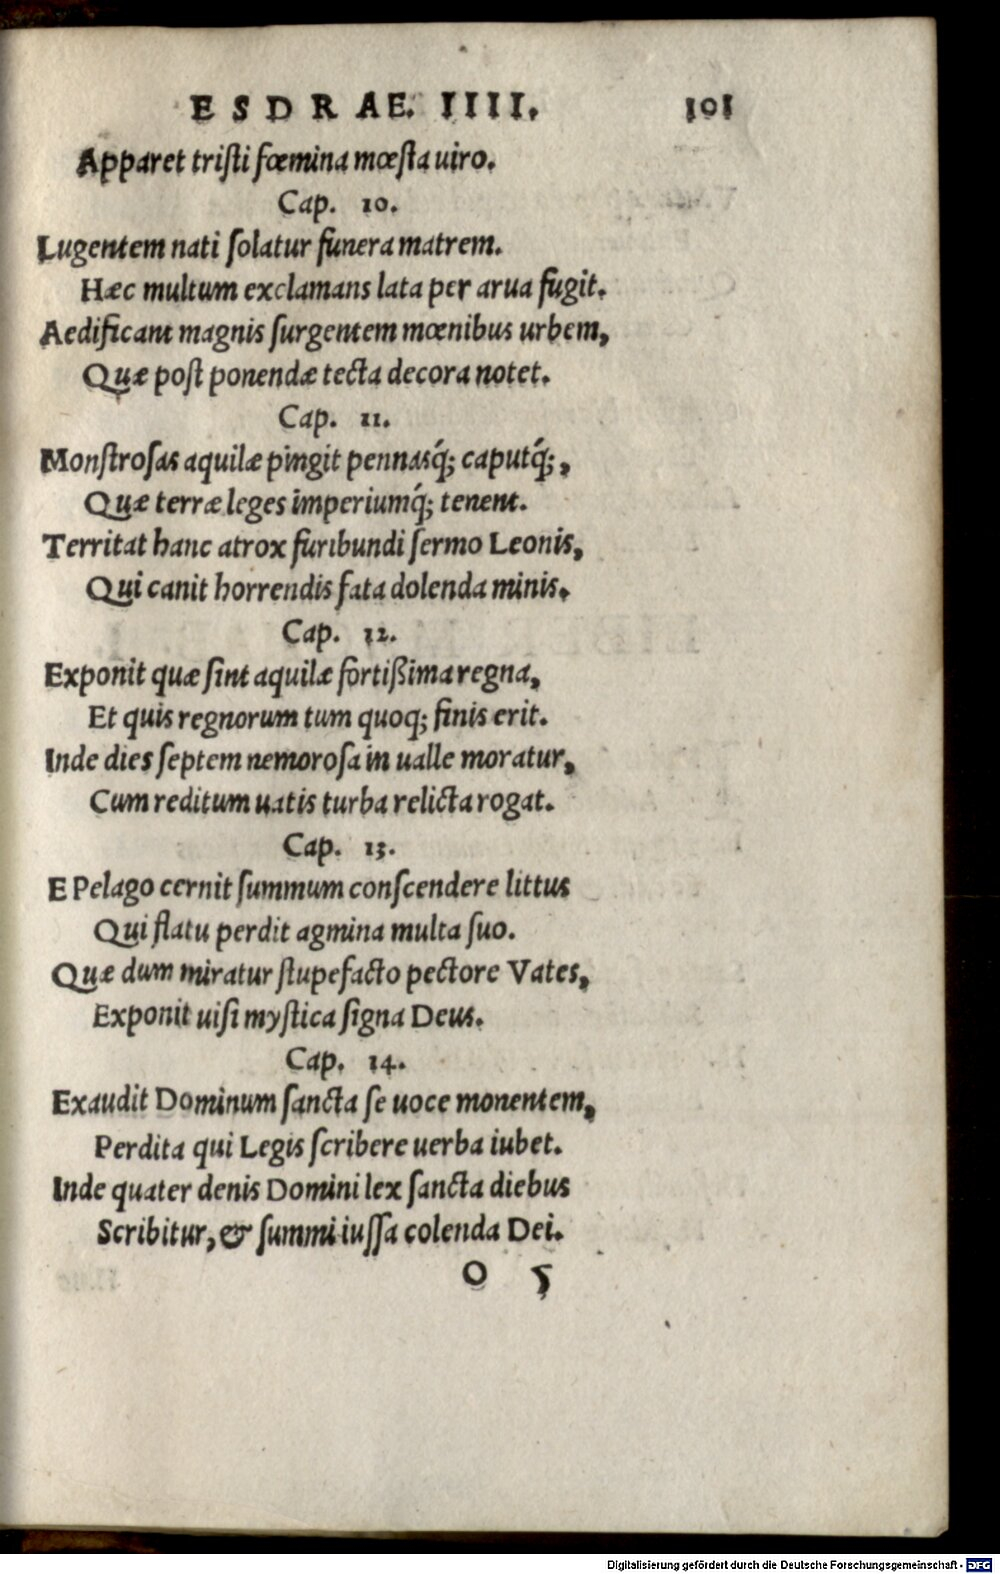 ESDRAE. IIII. 101
Apparet tristi fœmina mœsta uiro.
Cap. 10.
Lugentem nati solatur funera matrem.
Hæc multum exclamans lata per arua fugit.
Aedificant magnis surgentem mœnibus urbem,
Quæ post ponendæ tecta decora notet.
Cap. 11.
Monstrosas aquilæ pingit pennasq́; caputq́;,
Quæ terræ leges imperiumq́; tenent.
Territat hanc atrox furibundi sermo Leonis,
Qui canit horrendis fata dolenda minis.
Cap. 12.
Exponit quæ sint aquilæ fortißima regna,
Et quis regnorum tum quoq; finis erit.
Inde dies septem nemorosa in ualle moratur,
Cum reditum uatis turba relicta rogat.
Cap. 13.
E Pelago cernit summum conscendere littus
Qui flatu perdit agmina multa suo.
Quæ dum miratur stupefacto pectore Vates,
Exponit uisi mystica signa Deus.
Cap. 14.
Exaudit Dominum sancta se uoce monentem,
Perdita qui Legis scribere uerba iubet.
Inde quater denis Domini lex sancta diebus
Scribitur, & summi iussa colenda Dei.
O 5
Digitalisierung gefördert durch die Deutsche Forschungsgemeinschaft - DFG